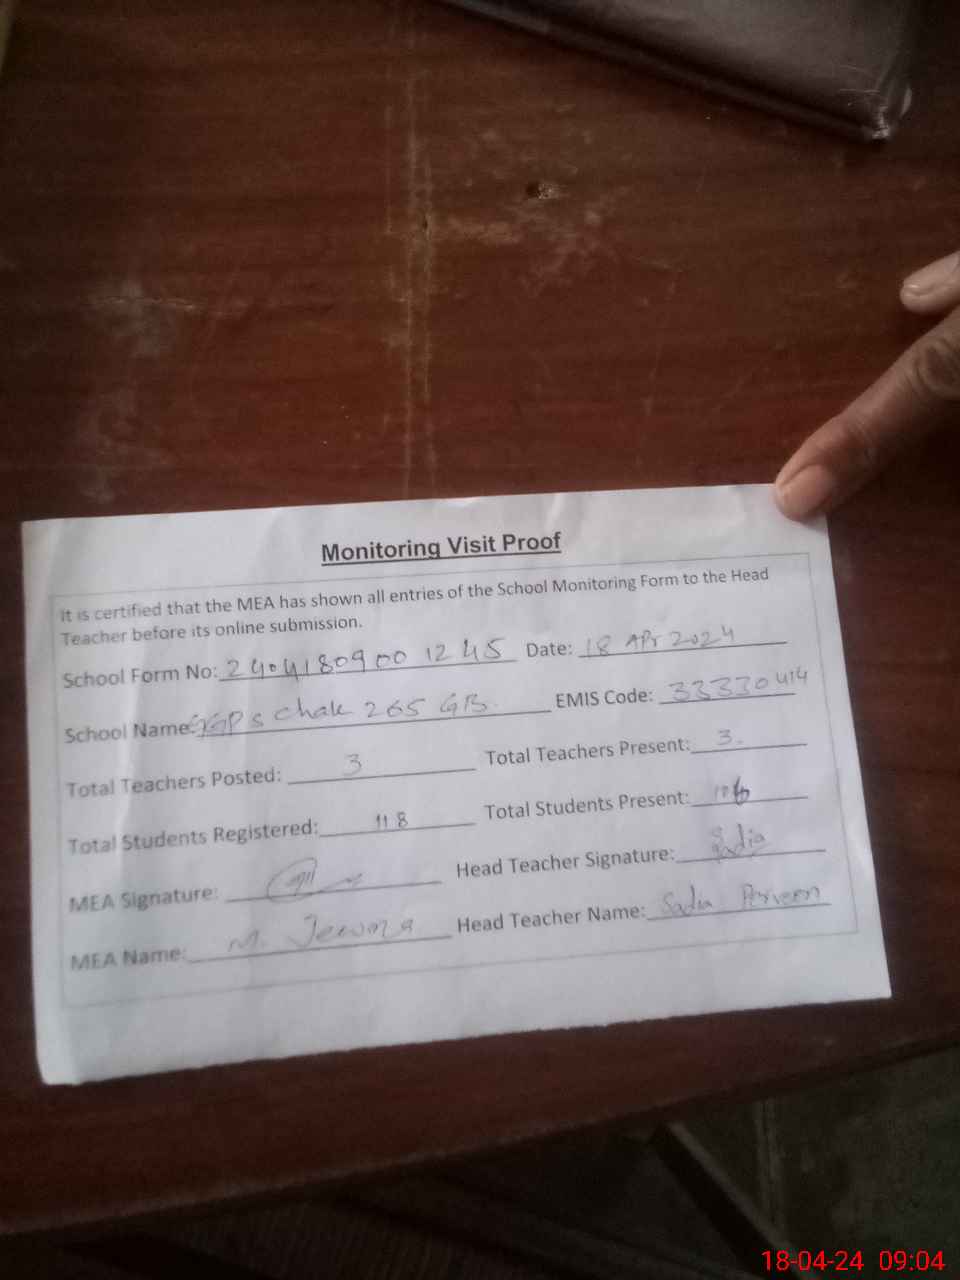 Monitoring Visit Proof
It is certified that the MEA has shown all entries of the School Monitoring Form to the Head
Teacher before its online submission.
School Form No: 24041809001245 Date: 18 APr 2024
School Name: GGPS Chak 265 GB. EMIS Code: 33330414
Total Teachers Posted: 3 Total Teachers Present: 3.
Total Students Registered: 118 Total Students Present:
MEA Signature: Head Teacher Signature: Sadia
MEA Name: M. Head Teacher Name: Sadia Perveen
18-04-24 09:04